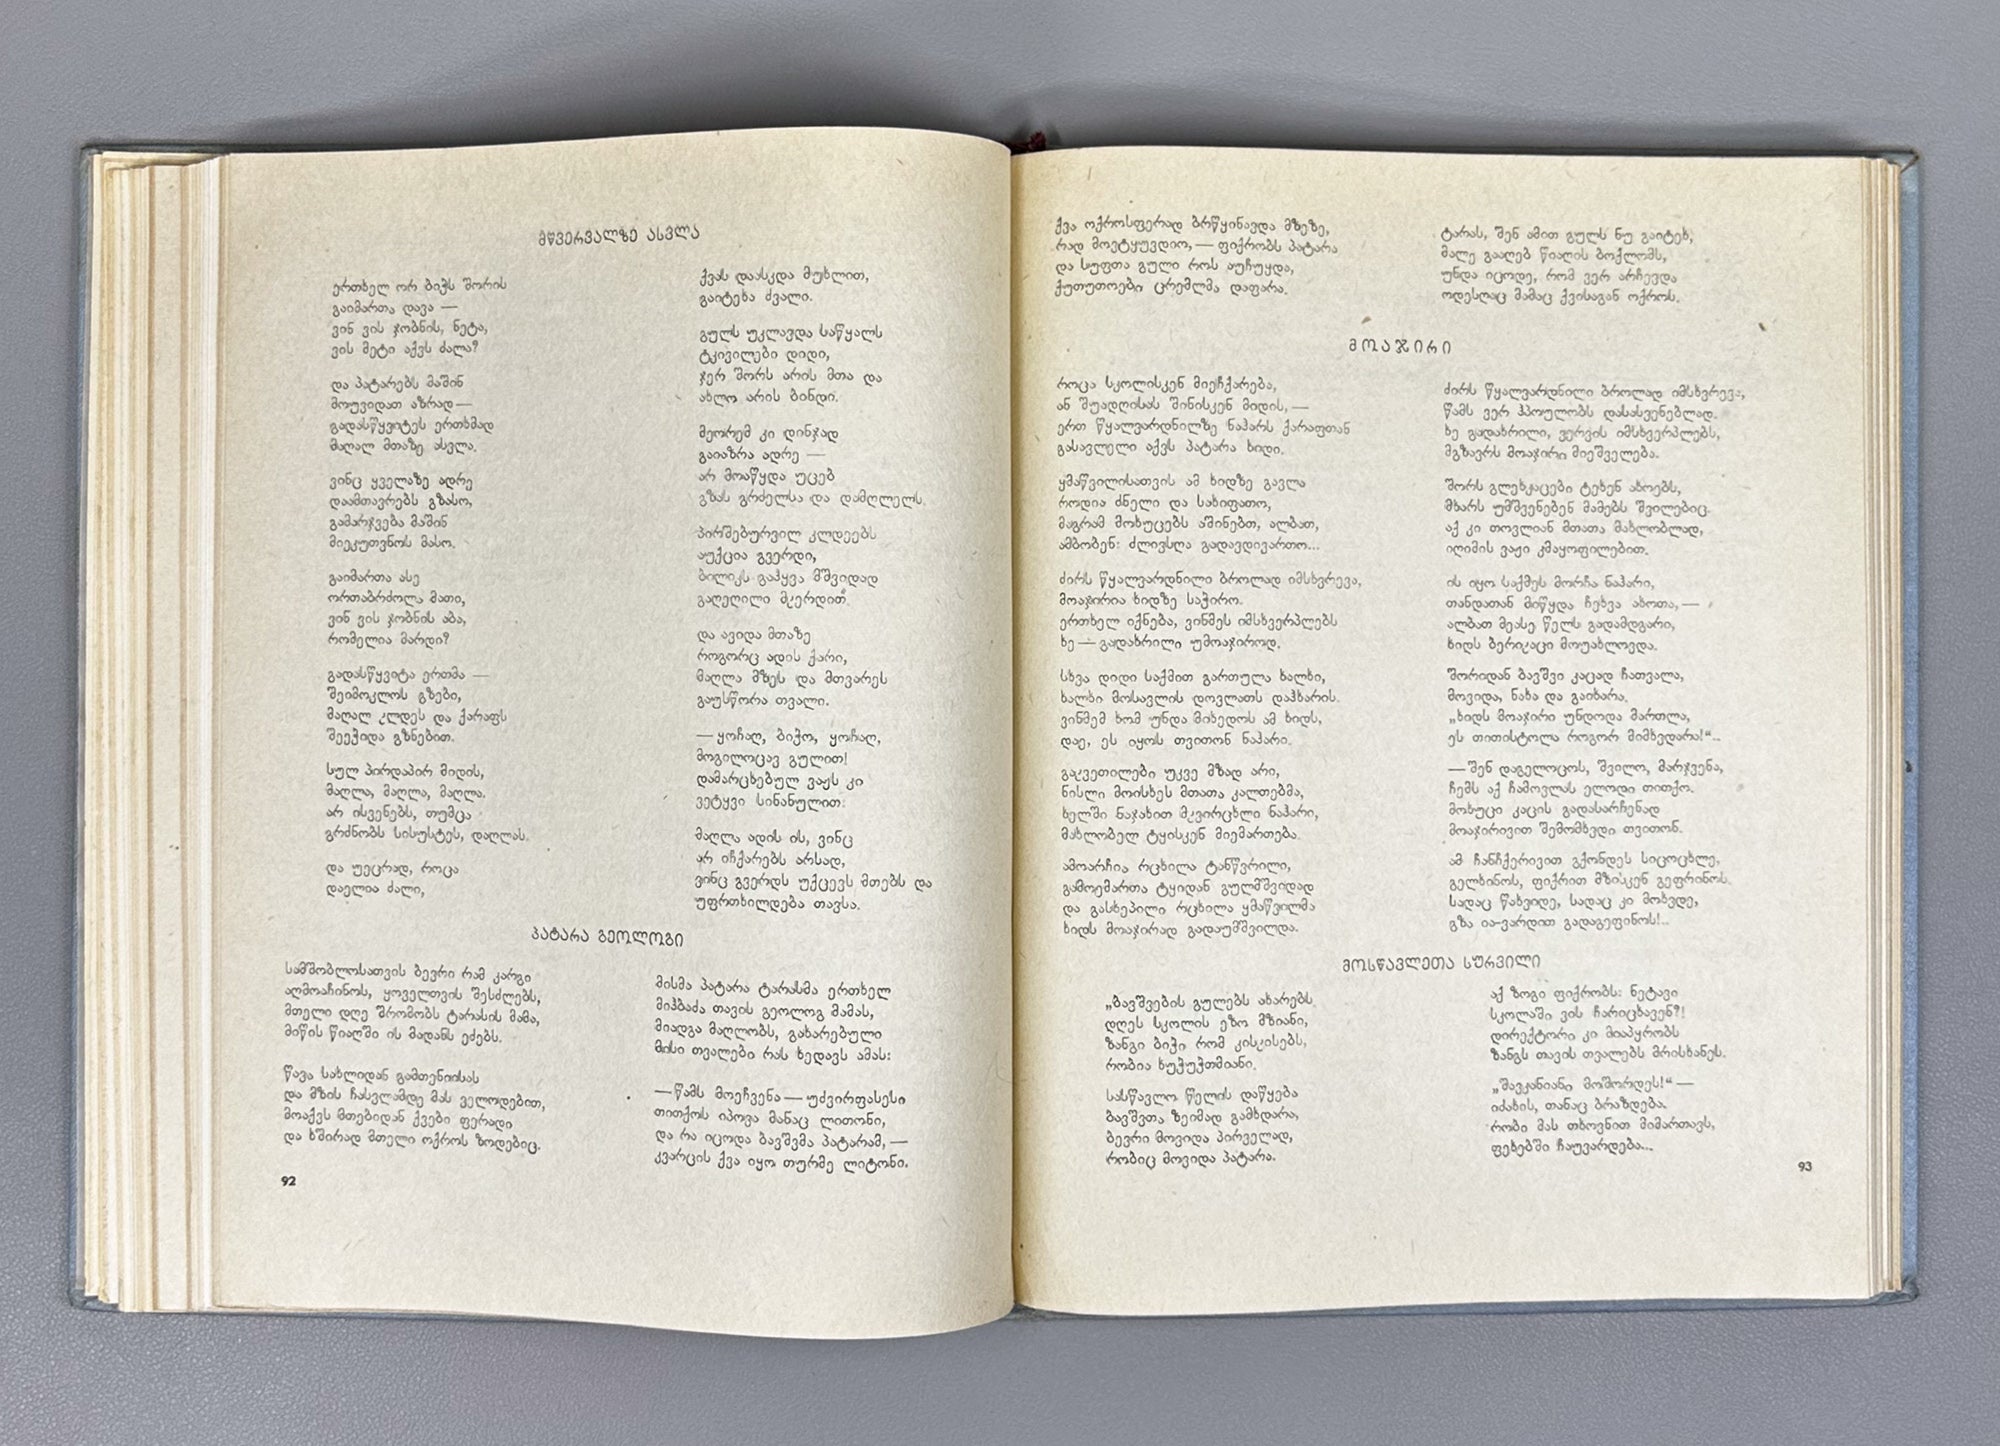 მწვერვალზე ასვლა
ერთხელ ორ ბიჭს შორის
გაიმართა დავა —
ვინ ვის ჯობნის, ნეტა,
ვის მეტი აქვს ძალა?
და პატარებს მაშინ
მოუვიდათ აზრად —
გადასწყვიტეს ერთხმად
მაღალ მთაზე ასვლა.
ვინც ყველაზე ადრე
დაამთავრებს გზასო,
გამარჯვება მაშინ
მიეკუთვნოს მასო.
გაიმართა ასე
ორთაბრძოლა მათი,
ვინ ვის ჯობნის აბა,
რომელია მარდი?
გადასწყვიტა ერთმა —
შეიმოკლოს გზები,
მაღალ კლდეს და ქარაფს
შეეჭიდა გზნებით.
სულ პირდაპირ მიდის,
მაღლა, მაღლა, მაღლა.
არ ისვენებს, თუმცა
გრძნობს სისუსტეს, დაღლას.
და უეცრად, როცა
დაელია ძალი,
ქვას დაასკდა მუხლით,
გაიტეხა ძვალი.
გულს უკლავდა საწყალს
ტკივილები დიდი,
ჯერ შორს არის მთა და
ახლო არის ბინდი.
მეორემ კი დინჯად
გაიაზრა ადრე —
არ მოაწყდა უცებ
გზას გრძელსა და დამღლელს.
პირშებურვილ კლდეებს
აუქცია გვერდი,
ბილიკს გაჰყვა მშვიდად
გაღეღილი მკერდით.
და ავიდა მთაზე
როგორც ადის ქარი,
მაღლა მზეს და მთვარეს
გაუსწორა თვალი.
— ყოჩაღ, ბიჭო, ყოჩაღ,
მოგილოცავ გულით!
დამარცხებულ ვაჟს კი
ვეტყვი სინანულით:
მაღლა ადის ის, ვინც
არ იჩქარებს არსად,
ვინც გვერდს უქცევს მთებს და
უფრთხილდება თავსა.
პატარა გეოლოგი
სამშობლოსათვის ბევრი რამ კარგი
აღმოაჩინოს, ყოველთვის შესძლებს,
მთელი დღე შრომობს ტარასის მამა,
მიწის წიაღში ის მადანს ეძებს.
წავა სახლიდან გამთენიისას
და მზის ჩასვლამდე მას ველოდებით,
მოაქვს მთებიდან ქვები ფერადი
და ხშირად მთელი ოქროს ზოდებიც.
მისმა პატარა ტარასმა ერთხელ
მიჰბაძა თავის გეოლოგ მამას,
მიადგა მაღლობს, გახარებული
მისი თვალები რას ხედავს ამას:
— წამს მოეჩვენა — უძვირფასესი
თითქოს იპოვა მანაც ლითონი,
და რა იცოდა ბავშვმა პატარამ, —
კვარცის ქვა იყო თურმე ლიტონი.
92
ქვა ოქროსფერად ბრწყინავდა მზეზე,
რად მოვტყუვდიო, — ფიქრობს პატარა
და სუფთა გული როს აუჩუყდა,
ქუთუთოები ცრემლმა დაფარა.
ტარას, შენ ამით გულს ნუ გაიტეხ,
მალე გააღებ წიაღის ბოქლომს,
უნდა იცოდე, რომ ვერ არჩევდა
ოდესღაც მამაც ქვისაგან ოქროს.
მოაჯირი
როცა სკოლისკენ მიეჩქარება,
ან შუადღისას შინისკენ მიდის, —
ერთ წყალვარდნილზე ნაჰარს ქარაფთან
გასავლელი აქვს პატარა ხიდი.
ყმაწვილისათვის ამ ხიდზე გავლა
როდია ძნელი და სახიფათო,
მაგრამ მოხუცებს აშინებთ, ალბათ,
ამბობენ: ძლივსღა გადავდივართო...
ძირს წყალვარდნილი ბროლად იმსხვრევა,
მოაჯირია ხიდზე საჭირო.
ერთხელ იქნება, ვინმეს იმსხვერპლებს
ხე — გადახრილი უმოაჯიროდ.
სხვა დიდი საქმით გართულა ხალხი,
ხალხი მოსავლის დოვლათს დაჰხარის.
ვინმემ ხომ უნდა მიხედოს ამ ხიდს,
დაე, ეს იყოს თვითონ ნაჰარი.
გაკვეთილები უკვე მზად არი,
ნისლი მოისხეს მთათა კალთებმა,
ხელში ნაჯახით მკვირცხლი ნაჰარი,
მახლობელ ტყისკენ მიემართება.
ამოარჩია რცხილა ტანწვრილი,
გამოემართა ტყიდან გულმშვიდად
და გასხეპილი რცხილა ყმაწვილმა
ხიდს მოაჯირად გადაუმშვილდა.
ძირს წყალვარდნილი ბროლად იმსხვრევა,
წამს ვერ ჰპოულობს დასასვენებლად.
ხე გადახრილი, ვერვის იმსხვერპლებს,
მგზავრს მოაჯირი მიეშველება.
შორს გლეხკაცები ტეხენ ახოებს,
მხარს უმშვენებენ მამებს შვილებიც.
აქ კი თოვლიან მთათა მახლობლად,
იღიმის ვაჟი კმაყოფილებით.
ის იყო საქმეს მორჩა ნაჰარი,
თანდათან მიწყდა ჩეხვა ახოთა, —
ალბათ მეასე წელს გადამდგარი,
ხიდს ბერიკაცი მოუახლოვდა.
შორიდან ბავშვი კაცად ჩათვალა,
მოვიდა, ნახა და გაიხარა.
„ხიდს მოაჯირი უნდოდა მართლა,
ეს თითისტოლა როგორ მიმხვდარა!“..
— შენ დაგელოცოს, შვილო, მარჯვენა,
ჩემს აქ ჩამოვლას ელოდი თითქო.
მოხუცი კაცის გადასარჩენად
მოაჯირივით შემომხვდი თვითონ.
ამ ჩანჩქერივით გქონდეს სიცოცხლე,
გელხინოს, ფიქრით მზისკენ გეფრინოს.
სადაც წახვიდე, სადაც კი მოხვდე,
გზა ია-ვარდით გადაგეფინოს!..
მოსწავლეთა სურვილი
„ბავშვების გულებს ახარებს
დღეს სკოლის ეზო მზიანი,
ზანგი ბიჭი რომ კისკისებს,
რობია ხუჭუჭთმიანი.
სასწავლო წელის დაწყება
ბავშვთა ზეიმად გამხდარა,
ბევრი მოვიდა პირველად,
რობიც მოვიდა პატარა.
აქ ზოგი ფიქრობს: ნეტავი
სკოლაში ვის ჩარიცხავენ?!
დირექტორი კი მიაპყრობს
ზანგს თავის თვალებს მრისხანეს.
„შავკანიანი მოშორდეს!“ —
იძახის, თანაც ბრაზდება.
რობი მას თხოვნით მიმართავს,
ფეხებში ჩაუვარდება...
93